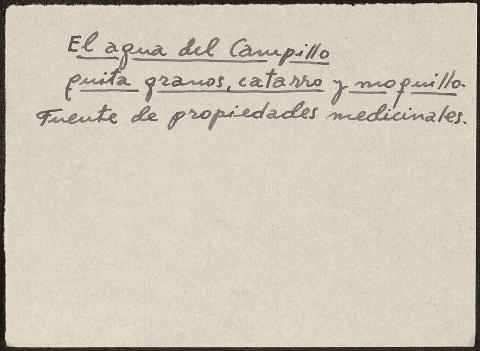 El agua del Campillo
quita granos, catarro y moquillo.
Fuente de propiedades medicinales.